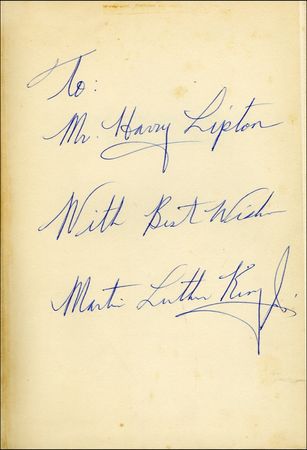 To:
Mr. Harry Lipton
With Best Wishes
Martin Luther King Jr.